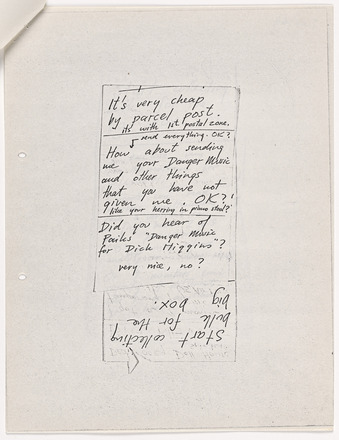 It's very cheap
by parcel post.
its with 1st postal zone.
send everything. OK?
How about sending
me your Danger Music
and other things
that you have not
given me. OK?
like your herring in piano stool?
Did you hear of
Paiks "Danger Music
for Dick Higgins"?
very nice, no?
Start collecting
bulk for the
big box.